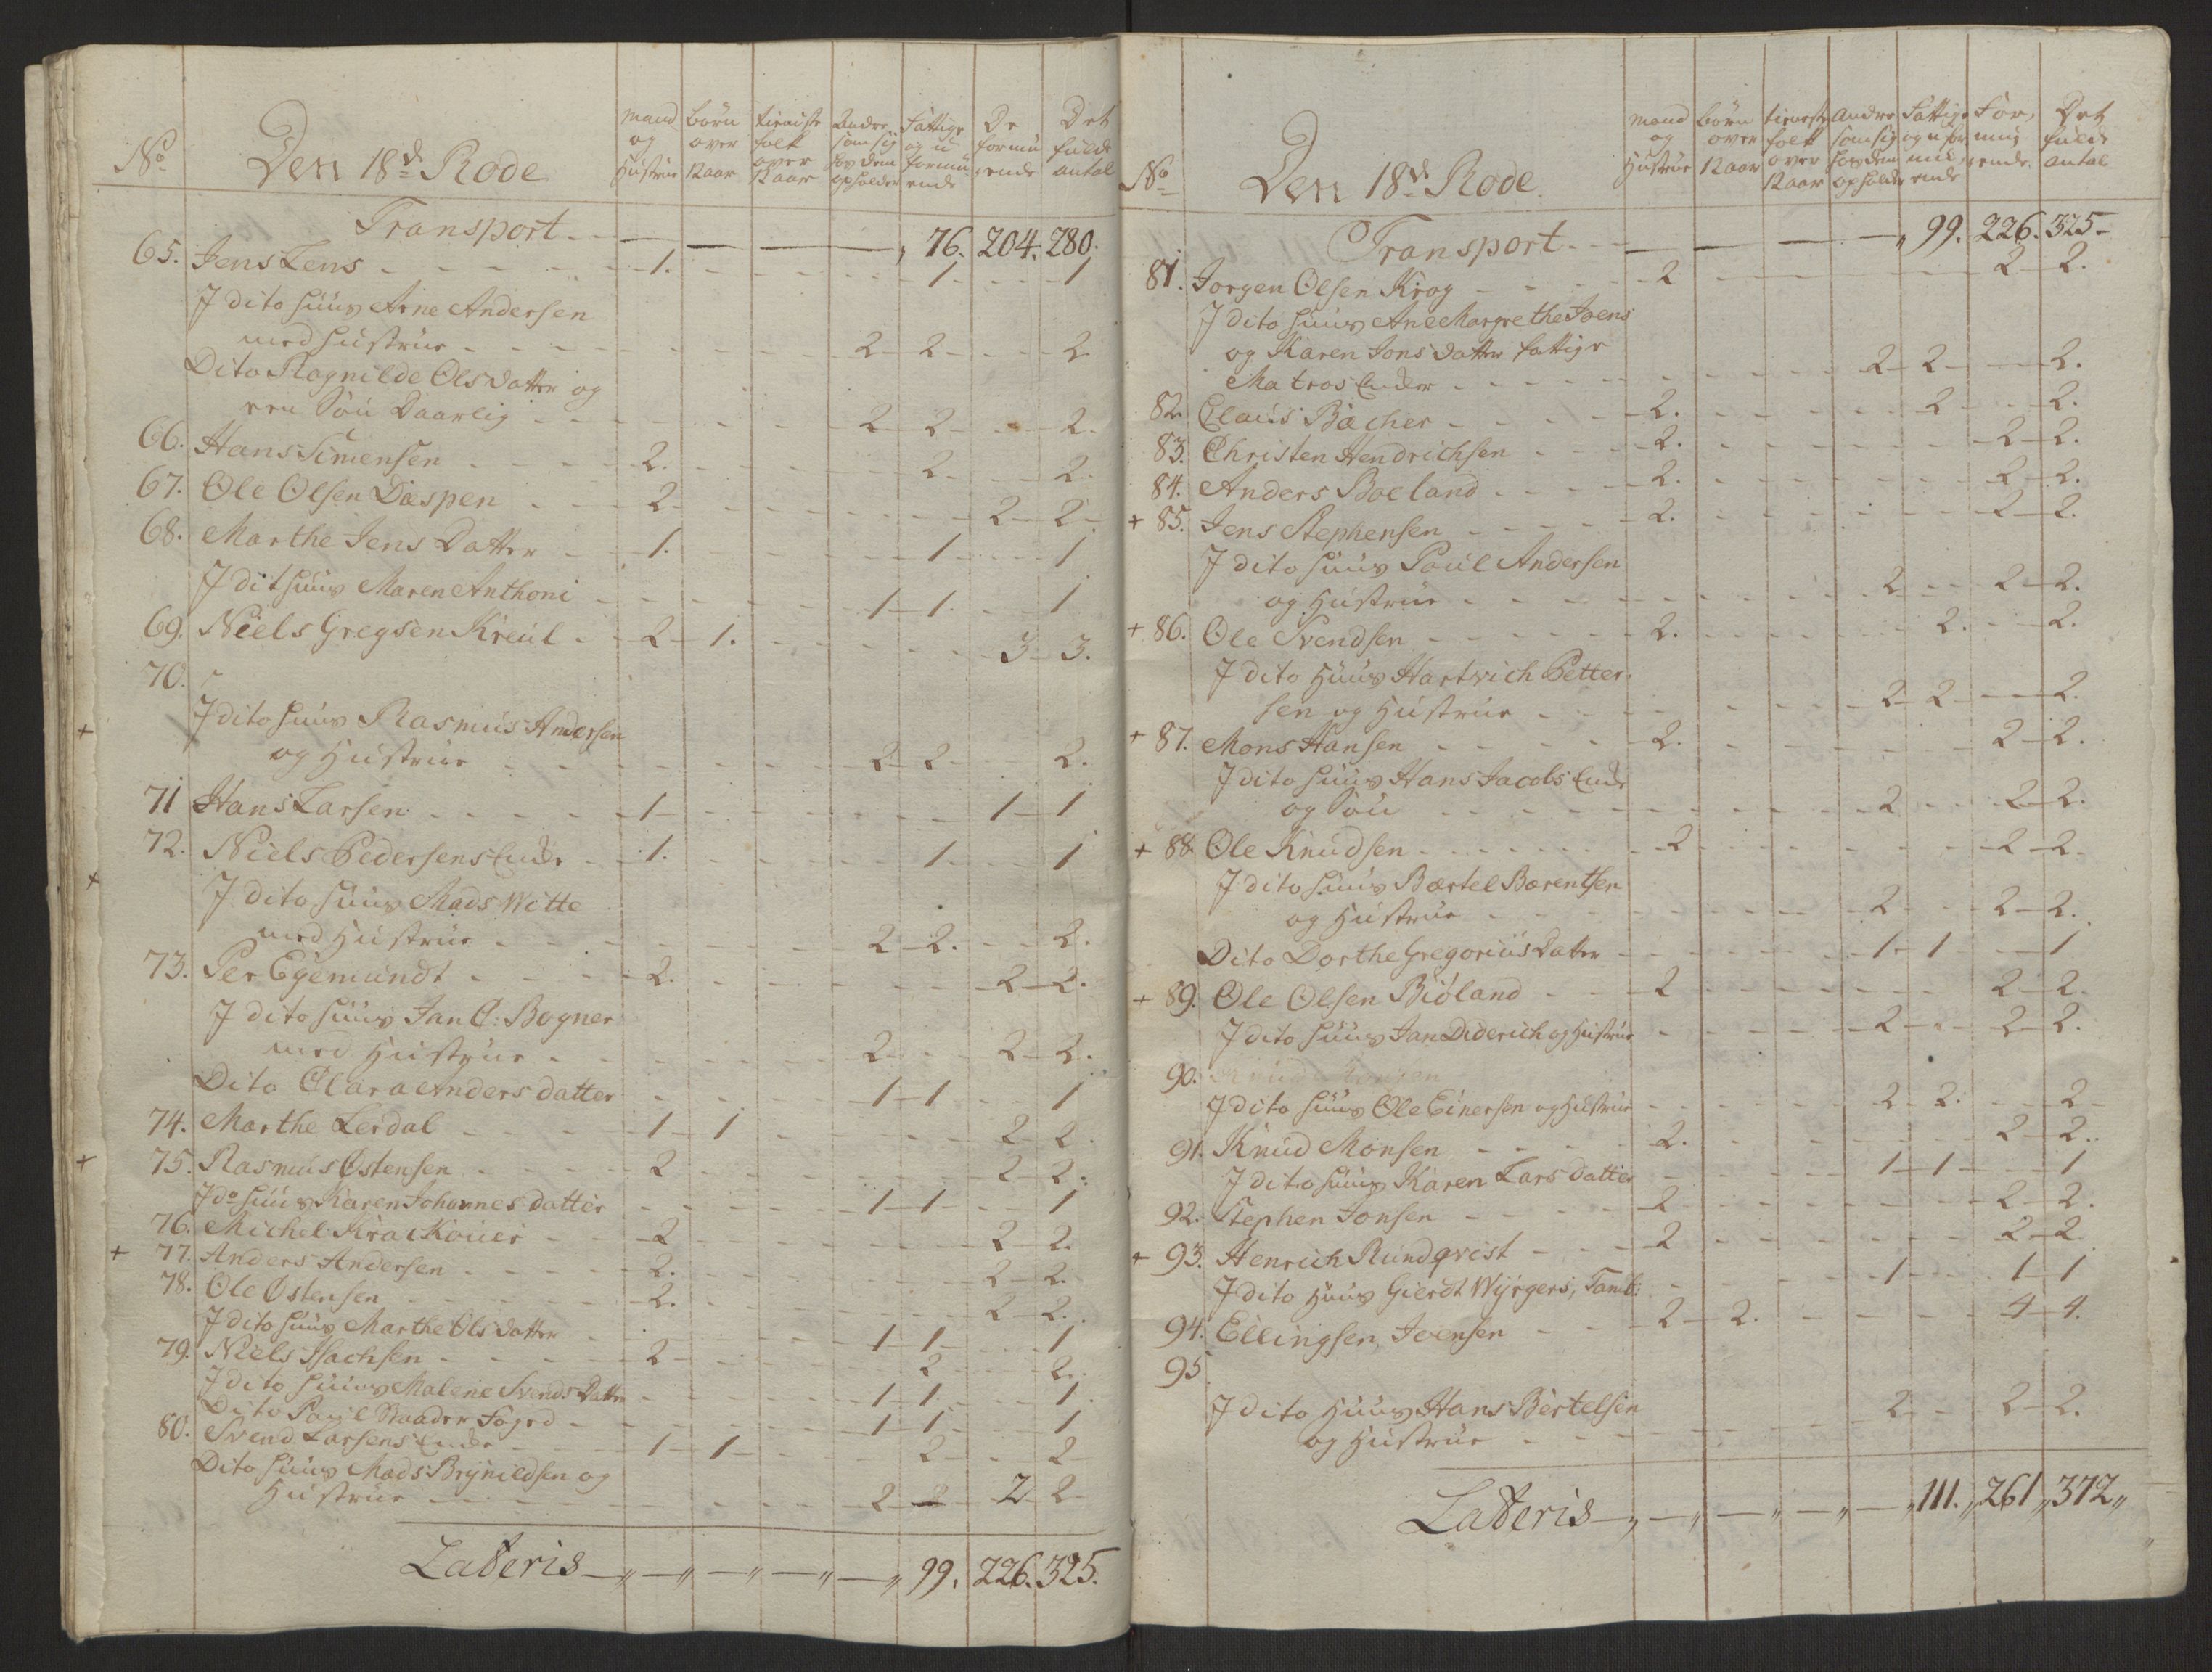 No Den 18de Rode
mand og Hustrue
börn over 12 aar
tieniste folk over 12 aar
Andre som sig hos dem opholder
Fattige og u formuende
De formuende
Det fulde antal
Transport - - - 76. 204. 280.
65. Jens Lens - - 1. - - 1 - - 1
J dito Huus Arne Andersen
med Hustrue - - 2 - 2 - - 2
Dito Ragnilde Olsdatter og
een Søn Daarlig - - 2 - 2 - - 2.
66. Hans Simensen - - 2. - - 2 - - 2.
67. Ole Olsen Daspen - - 2 - - 2 - 2 -
68. Marthe Jens Datter - - 1. - - 1 - - 1
J dit Huus Maren Anthoni - - 1 - 1. - - 1
69. Niels Gregsen Kreul - - 2 - 1. - - 3 - 3.
70.
+ J dito Huus Rasmus Andersen
og Hustrue - - 2 - 2 - - 2.
71 Hans Larsen - - 1 - - 1 - 1
72. Niels Pedersens Encke - - 1. - - 1 - - 1
+ J dito Huus Mads Witte
med Hustrue - - 2 - 2. - - 2.
73. Per Egemundt - - 2. - - 2 - 2.
J dito Huus Jan C: Bogner
med Hustrue - - 2 - - 2 - 2.
Dito Clara Anders datter - - 1 - 1 - - 1
74. Marthe Lerdal - - 1 - 1 - - 2 - 2.
+ 75. Rasmus Østensen - - 2 - - 2 - 2.
J do Huus Karen Johannes datter - - 1 - 1 - - 1
76. Michel - - 2 - - 2 - 2.
+ 77. Anders Andersen - - 2. - - 2 - 2.
78. Ole Østensen - - 2. - - 2 - 2.
J dito Huus Marthe Ols datter - - 1 - 1 - - 1
79. Niels Isachsen - - 2 - - 2 - - 2.
J dito Huus Malene Svends Datter - - 1 - 1 - - 1.
Dito Paul Raader Foged - - 1 - 1 - - 1
80. Svend Larsens Encke - - 1 - 1 - - 2 - - 2
Dito Huus Mads Brynildsen og
Hustrue - - 2 - - 2 - 2 -
Lateris - - - 99. 226. 325.
No Den 18de Rode.
mand og Hustrue
börn over 12 aar
tieneste folk over 12 aar
Andre som sig hos dem opholder
Fattige og u formuende
For muende.
Det fulde antal
Transport - - - 99. 226. 325 -
81. Jorgen Olsen Krog - - 2 - - 2 - 2.
J dito Huus Ane Margrethe Joens
og Karen Jons datter fattige
Matros Encker - - 2 - 2 - - 2.
82. Claus Bacher - - 2. - - 2 - - 2.
83. Christen Hendrichsen - - 2. - - 2 - 2.
84. Anders Boeland - - 2. - - 2 - 2.
+ 85. Jens Stephensen - - 2. - - 2 - 2.
J dito Huus Poul Andersen
og Hustrue - - 2 - - 2 - 2.
+ 86. Ole Svendsen - - 2. - - 2. - - 2.
J dito Huus Hartvich Petter
sen og Hustrue - - 2 - 2 - - 2.
+ 87. Mons Hansen - - 2. - - 2 - 2.
J dito Huus Hans Jacobs Encke
og Søn - - 2 - - 2 - 2.
+ 88 Ole Knudsen - - 2 - - 2 - 2 -
J dito Huus Bærtel Børentsen
og Hustrue - - 2 - - 2 - 2.
Dito Dorthe Gregorius datter - - 1 - 1 - - 1
+ 89. Ole Olsen Biöland - - 2 - - 2 - 2 -
J dito Huus Jan Diderich og Hustrue - - 2 - - 2 - 2.
90.
J dito Huus Ole Einersen og Hustrue - - 2 - 2. - - 2 -
91. Knud Monsen - - 2. - - 2 - 2.
J dito Huus Karen Lars datter - - 1 - 1 - - 1
92. Stephen Jonsen - - 2 - - 2 - 2.
+ 93. Henrich Rundqvist - - 2 - - 2 - 2
J dito Huus Gierdt Wyrgers, Tamb: - - 1 - - 1 - 1
94. Ellingsen, Joensen - - 2 - 2. - - 4 - 4.
95
J dito Huus Hans Bertelsen
og Hustrue - - 2 - - 2 - 2.
Lateris - - - 111. 261 372